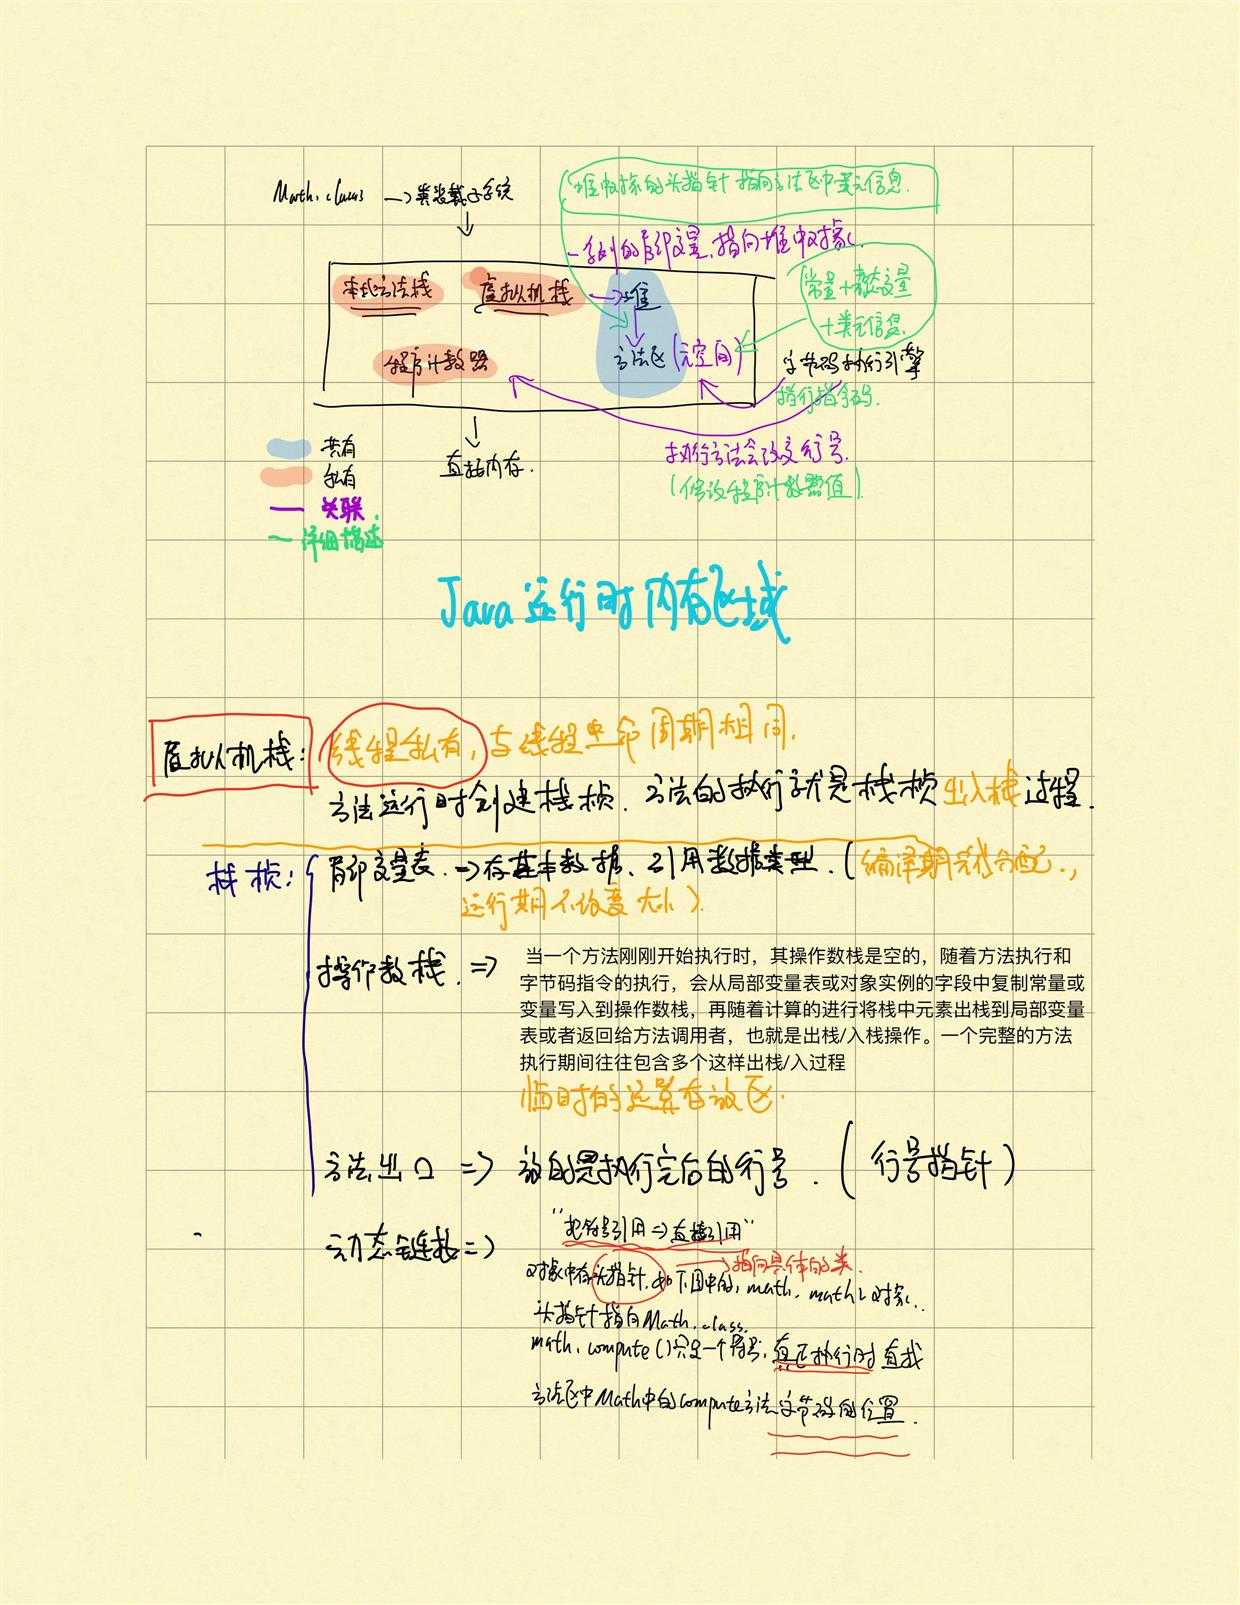 Math.class → 类装载子系统
堆中对象的头指针指向方法区中类元信息.
一系列的局部变量,指向堆中对象.
本地方法栈 虚拟机栈 → 堆
常量+静态变量
+类元信息.
程序计数器 方法区(元空间)
字节码执行引擎
执行指令码.
共有 直接内存.
执行方法会改变行号.
私有
(修改程序计数器值)
关联.
详细描述
Java运行时内存区域
虚拟机栈: 线程私有,与线程生命周期相同.
方法运行时创建栈桢.方法的执行就是栈桢出入栈过程.
栈桢: 局部变量表.→存基本数据、引用数据类型.(编译期完成分配.,
运行期不改变大小).
操作数栈.⇒
当一个方法刚刚开始执行时，其操作数栈是空的，随着方法执行和
字节码指令的执行，会从局部变量表或对象实例的字段中复制常量或
变量写入到操作数栈，再随着计算的进行将栈中元素出栈到局部变量
表或者返回给方法调用者，也就是出栈/入栈操作。一个完整的方法
执行期间往往包含多个这样出栈/入过程
临时的运算存放区.
方法出口 ⇒ 放的是执行完后的行号.(行号指针)
动态链接⇒
"把符号引用⇒直接引用"
→指向具体的类.
对象中有头指针.如下图中的,math、math2对象.
头指针指向Math.class.
math.compute()只是一个符号,真正执行时 查找
方法区中Math中的compute方法字节码的位置.